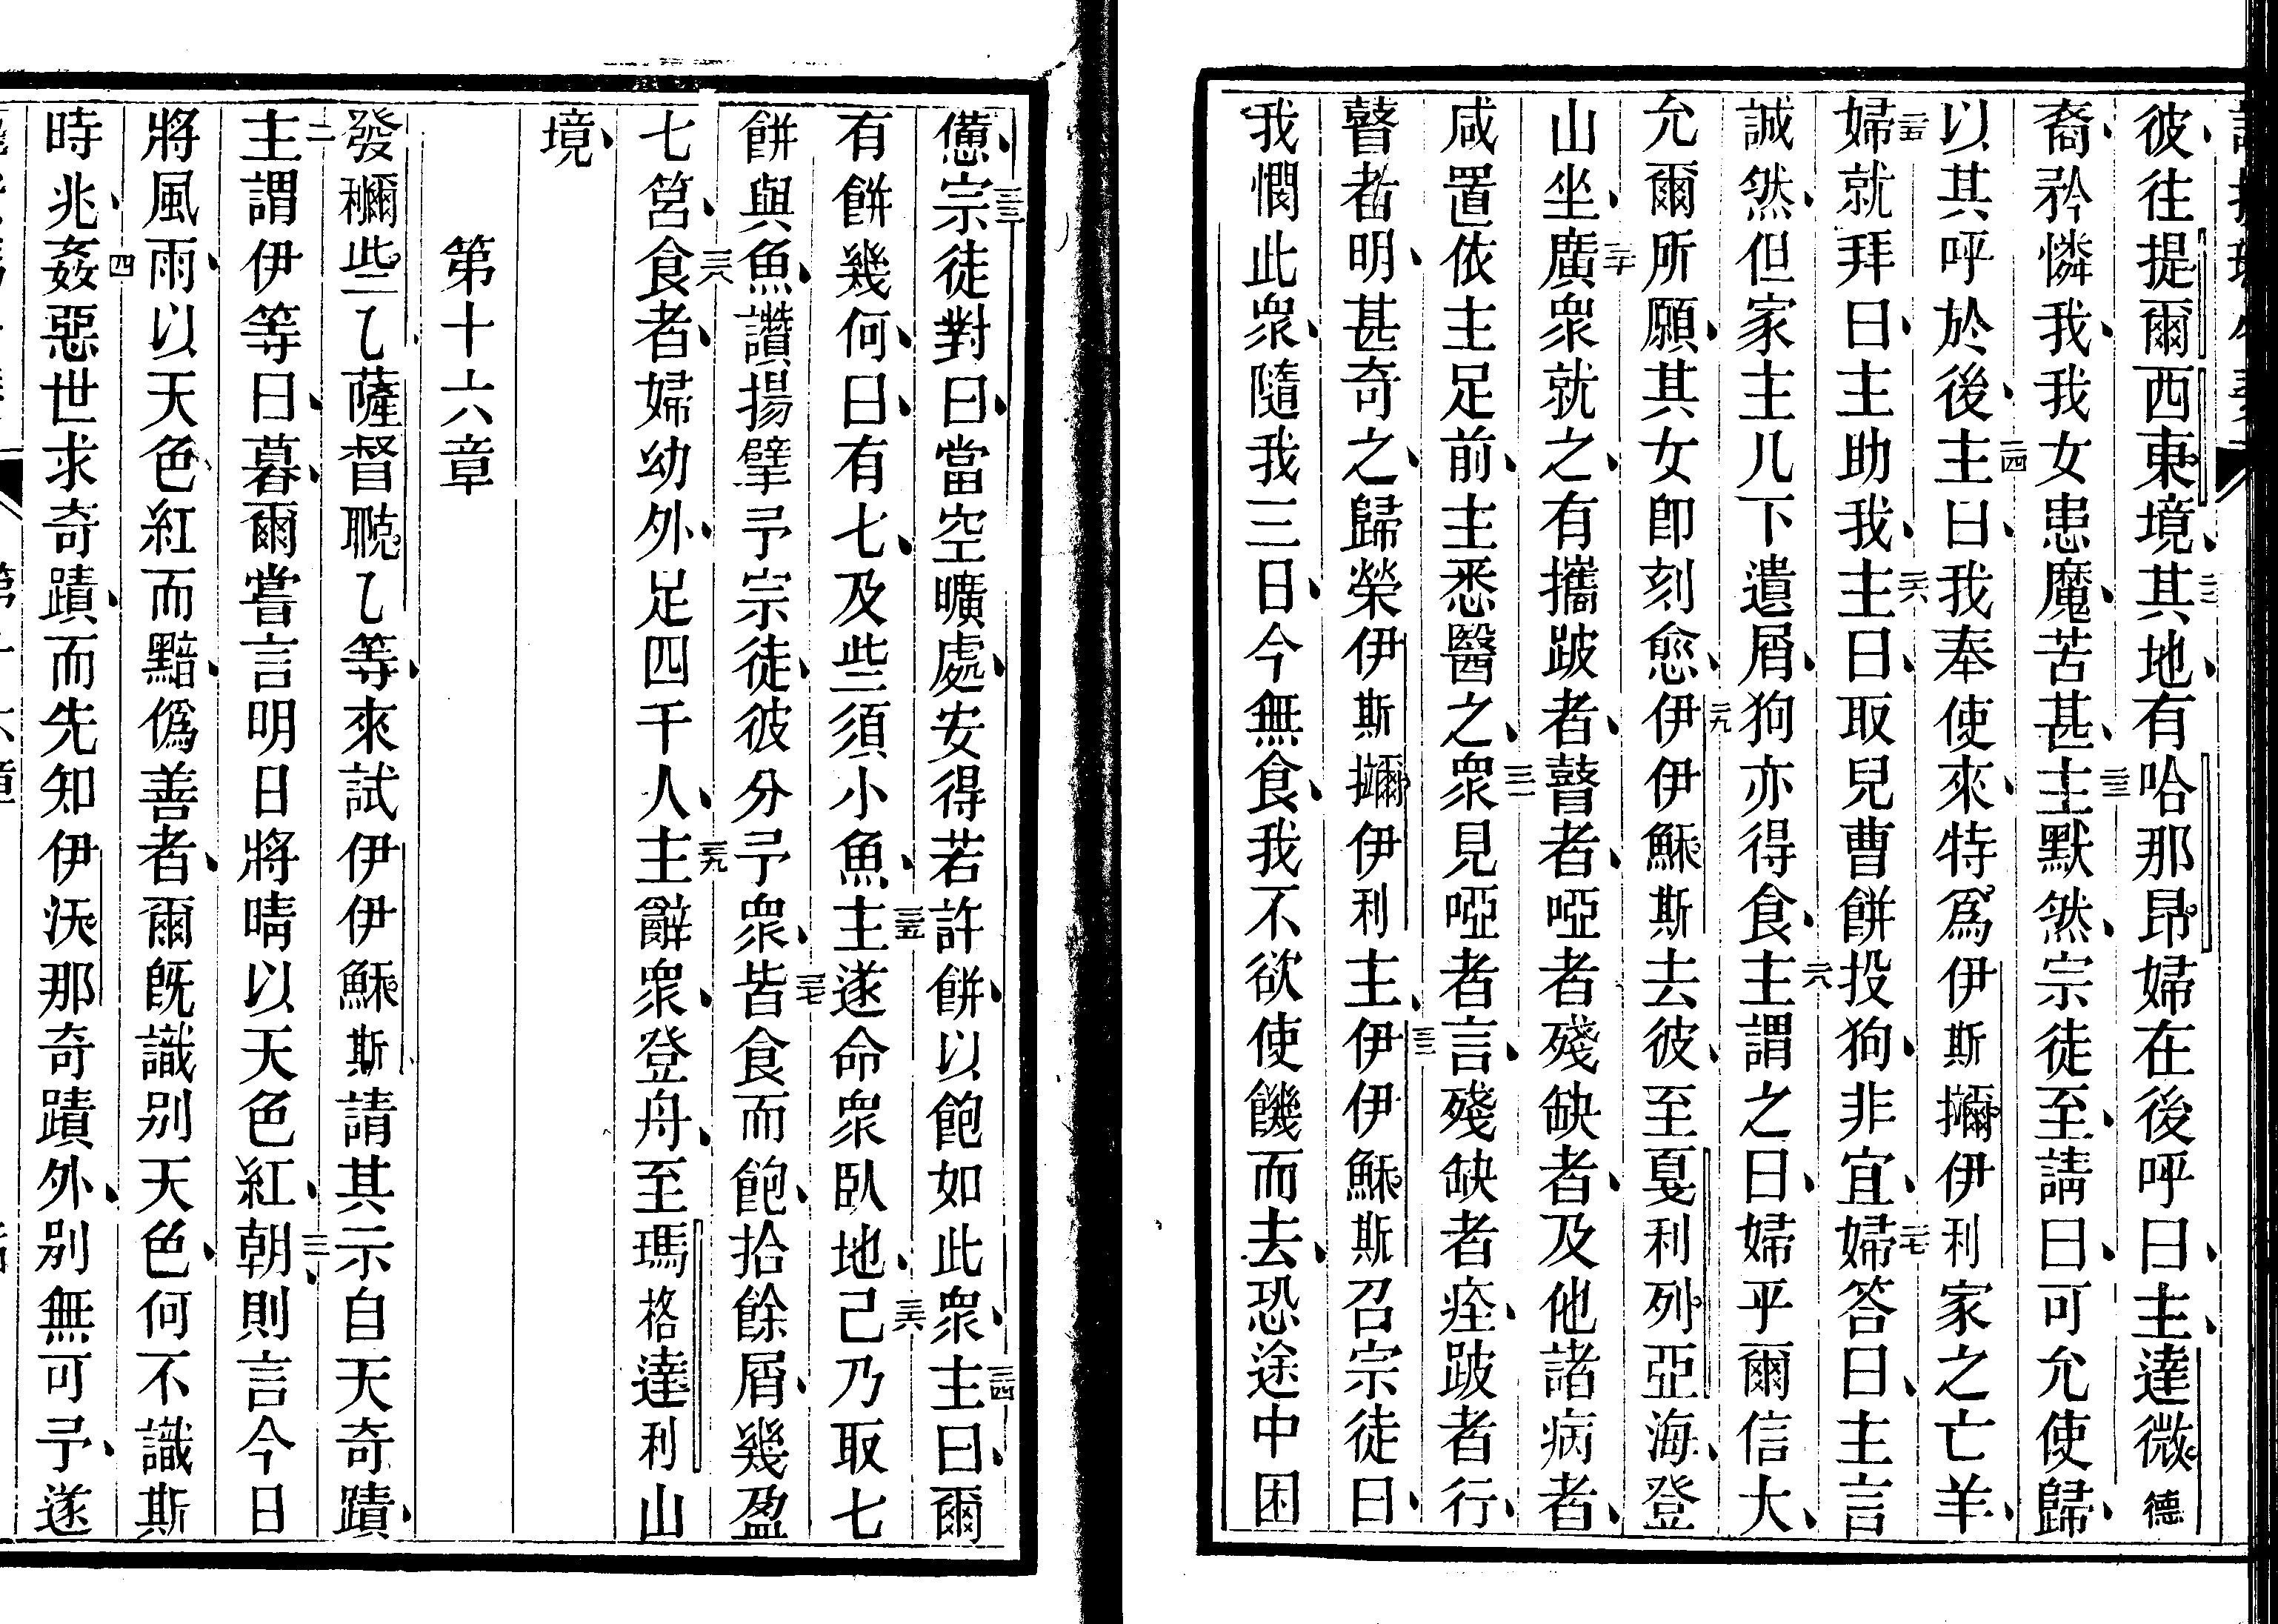 彼、往提爾西東境、二二其地、有哈那昂婦在後呼曰、主、達微德
裔、矜憐我、我女患魔、苦甚、二三主默然、宗徒至、請曰、可允使歸、
以其呼於後、二四主曰、我奉使來、特爲伊斯𭡝伊利家之亡羊、
二五婦就拜曰、主助我、二六主曰、取兒曹餅投狗、非宜、二七婦答曰、主言
誠然、但家主几下遺屑、狗亦得食、二八主謂之曰、婦乎爾信大、
允爾所願、其女卽刻愈、二九伊伊穌斯去彼、至戛利列亞海、登
山坐、三十廣眾就之、有攜跛者、瞽者、啞者殘缺者、及他諸病者、
咸置依主足前、主悉醫之、三一眾見啞者言、殘缺者痊、跛者行、
瞽者明、甚奇之、歸榮伊斯𭡝伊利主、三二伊伊穌斯召宗徒曰、
我憫此眾、隨我三日、今無食、我不欲使饑而去、恐途中困
憊、三三宗徒對曰、當空曠處、安得若許餅、以飽如此眾、三四主曰、爾
有餅幾何、曰、有七、及些須小魚、三五主遂命眾臥地、三六己乃取七
餅與魚、讚揚擘予宗徒、彼分予眾、三七皆食而飽、拾餘屑、幾盈
七筥、三八食者、婦幼外、足四千人、三九主辭眾、登舟、至瑪格達利山
境、
第十六章
發穪些乙薩督聦乙等、來試伊伊穌斯請其示自天奇蹟、
二主謂伊等曰、暮、爾嘗言明日將晴以天色紅、三朝、則言今日
將風雨、以天色紅而黯、僞善者、爾旣識別天色、何不識斯
時兆、四姦惡世求奇蹟、而先知伊㳄那奇蹟外、別無可予、遂